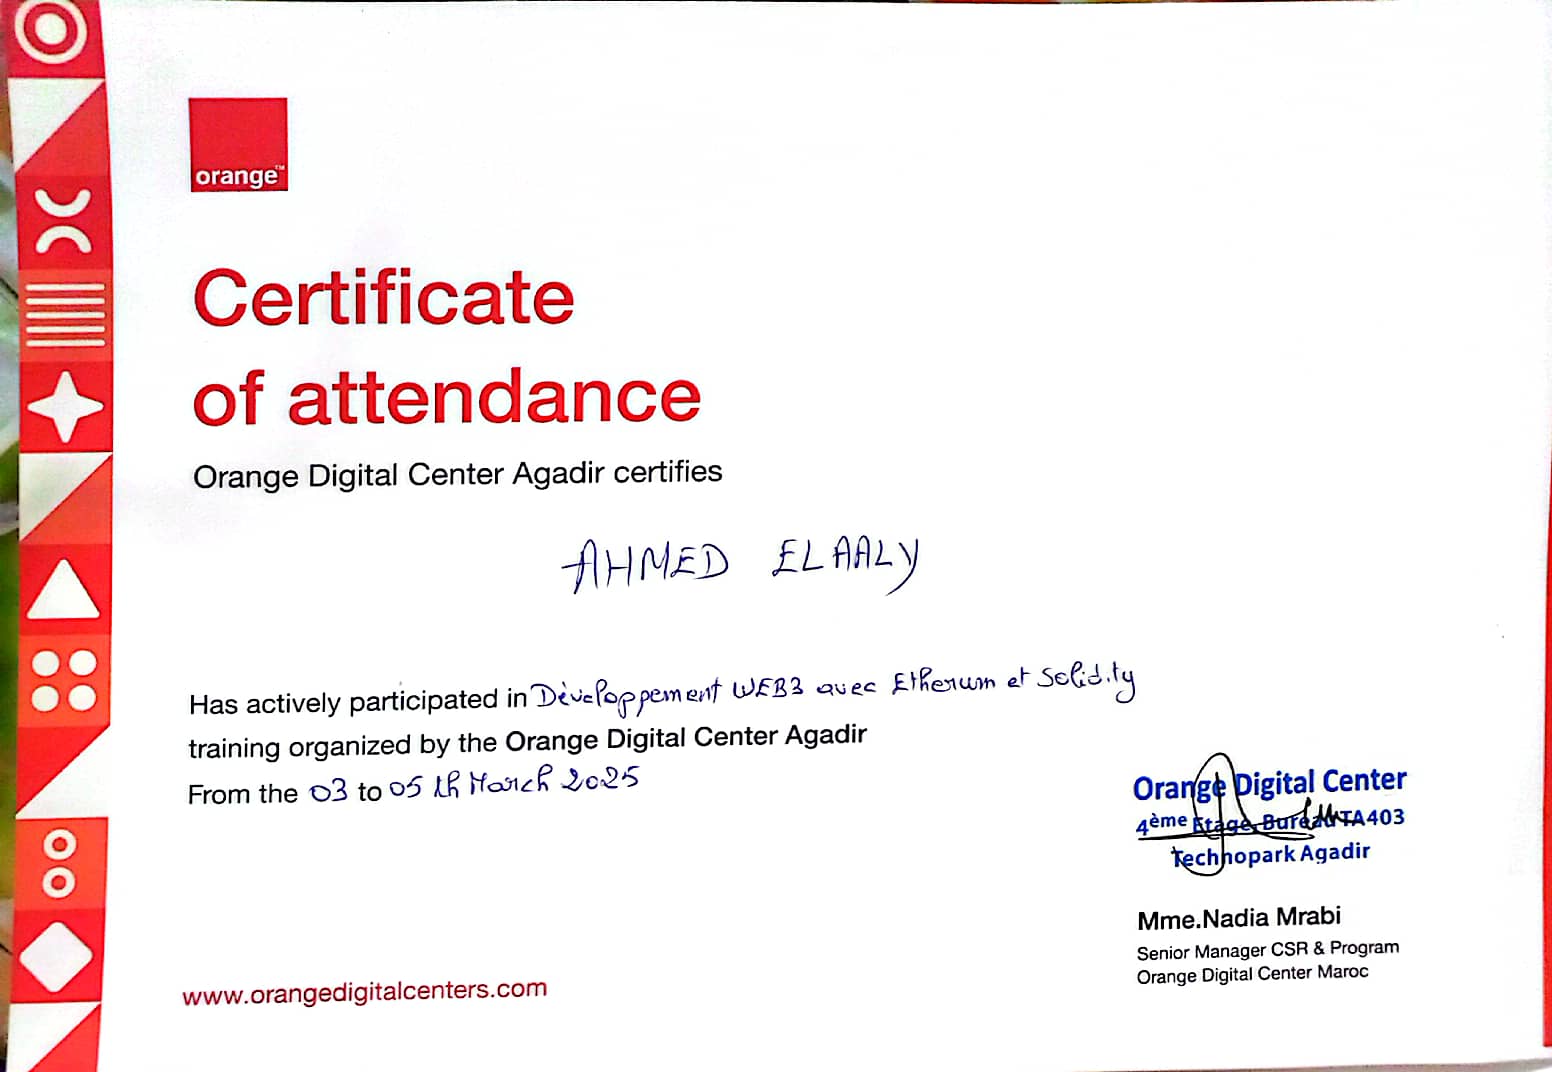 orange™
Certificate
of attendance
Orange Digital Center Agadir certifies
AHMED ELAALY
Has actively participated in Développement WEB3 avec Etherum et Solidity
training organized by the Orange Digital Center Agadir
From the 03 to 05 th March 2025
Orange Digital Center
4ème Etage, Bureau TA403
Technopark Agadir
Mme.Nadia Mrabi
Senior Manager CSR & Program
Orange Digital Center Maroc
www.orangedigitalcenters.com